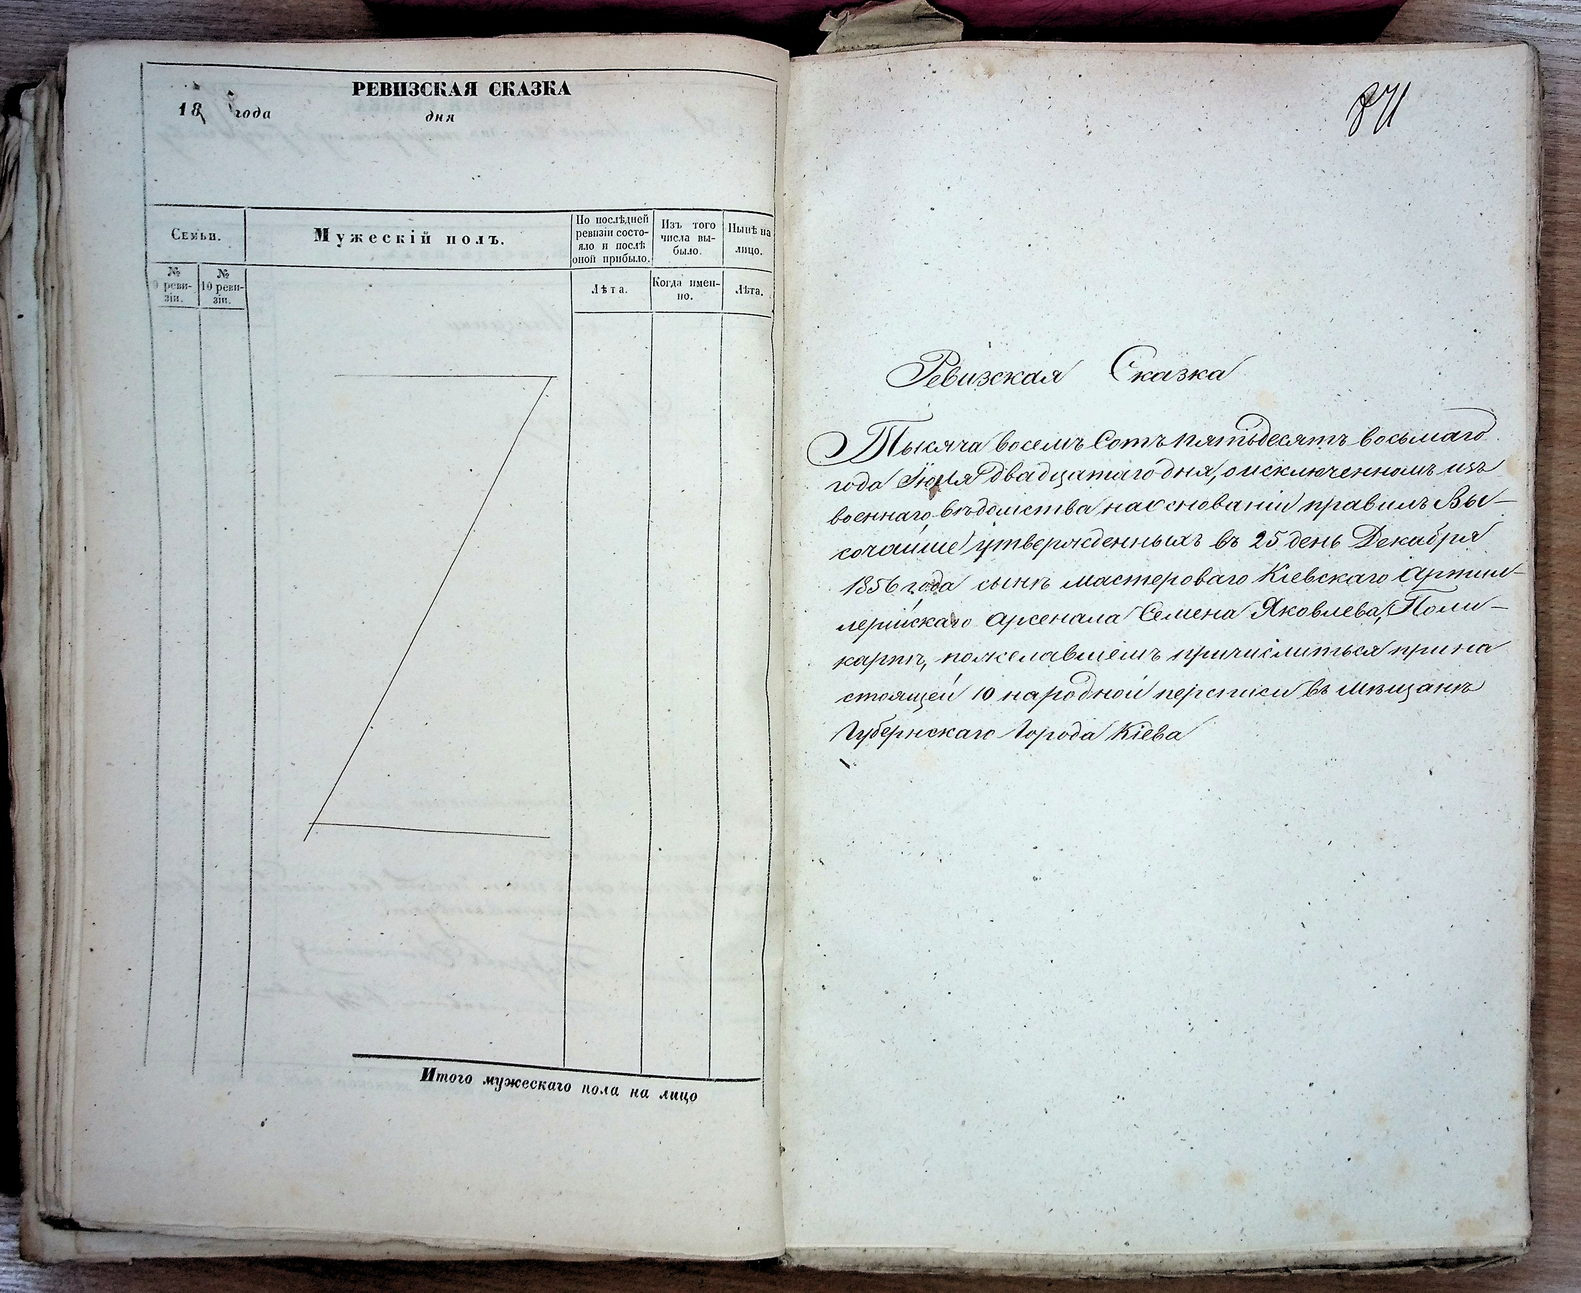 РЕВИЗСКАЯ СКАЗКА
18 года дня
Семьи.
Мужескій полъ.
По послѣдней ревизіи состо-
яло и послѣ оной прибыло.
Изъ того числа вы-
было.
Нынѣ на лицо.
№ 9 реви-
зіи.
№ 10 реви-
зіи.
Лѣта.
Когда имен-
но.
Лѣта.
Итого мужескаго пола на лицо
871
Ревизская Сказка
Тысяча восемъ Сотъ пятьдесятъ восьмаго
года Іюля двадцатаго дня, о исключенномъ изъ
военнаго вѣдомства на основаніи правилъ Вы-
сочайше утвержденныхъ въ 25 день Декабря
1856 года сынѣ мастероваго Кіевскаго Артил-
лерійскаго Арсенала Семена Яковлева, Поли-
карпѣ, пожелавшемъ причислиться при на
стоящей 10 народной переписи въ мѣщанѣ
Губернскаго Города Кіева